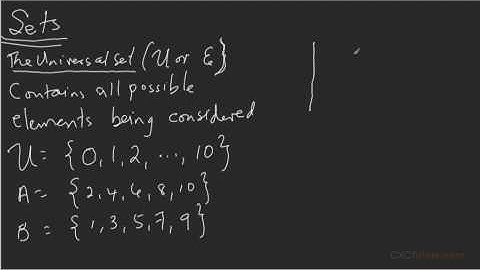 Sets
The Universal set (U or ε}
Contains all possible
elements being considered
U = {0, 1, 2, ..., 10}
A = {2, 4, 6, 8, 10}
B = {1, 3, 5, 7, 9}